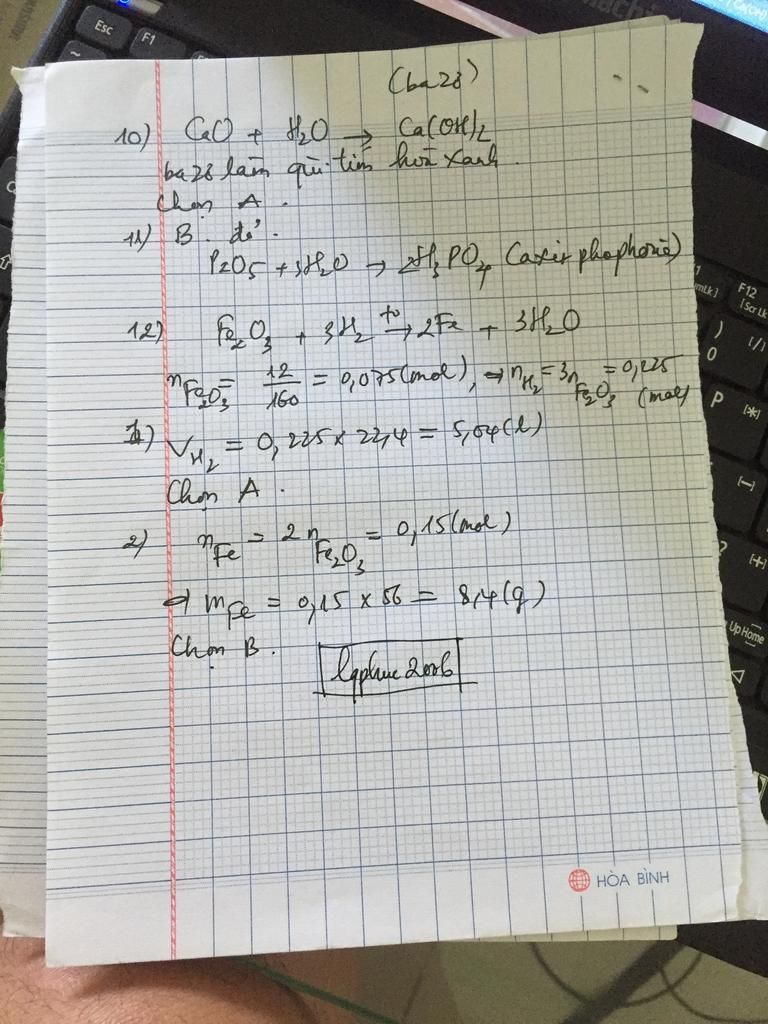 (bazơ)
10) CaO + H₂O → Ca(OH)₂
bazơ làm quì tím hoá xanh.
Chọn A.
11) B. đỏ.
P₂O₅ + 3H₂O → 2H₃PO₄ (axit phophoric)
12) Fe₂O₃ + 3H₂ t⁰→ 2Fe + 3H₂O
nFe₂O₃ = 12/160 = 0,075(mol), → nH₂ = 3nFe₂O₃ = 0,225 (mol)
1) VH₂ = 0,225 x 22,4 = 5,04(l)
Chọn A.
2) nFe = 2nFe₂O₃ = 0,15(mol)
→ mFe = 0,15 x 56 = 8,4(g)
Chọn B.
lqphuc2006
HÒA BÌNH
Esc
F1
F12
0
P
Home